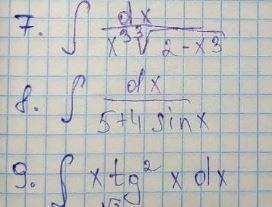 7. ∫ dx / x³ ∛(2-x³)
8. ∫ dx / 5+4 sinx
9. ∫ x tg² x dx